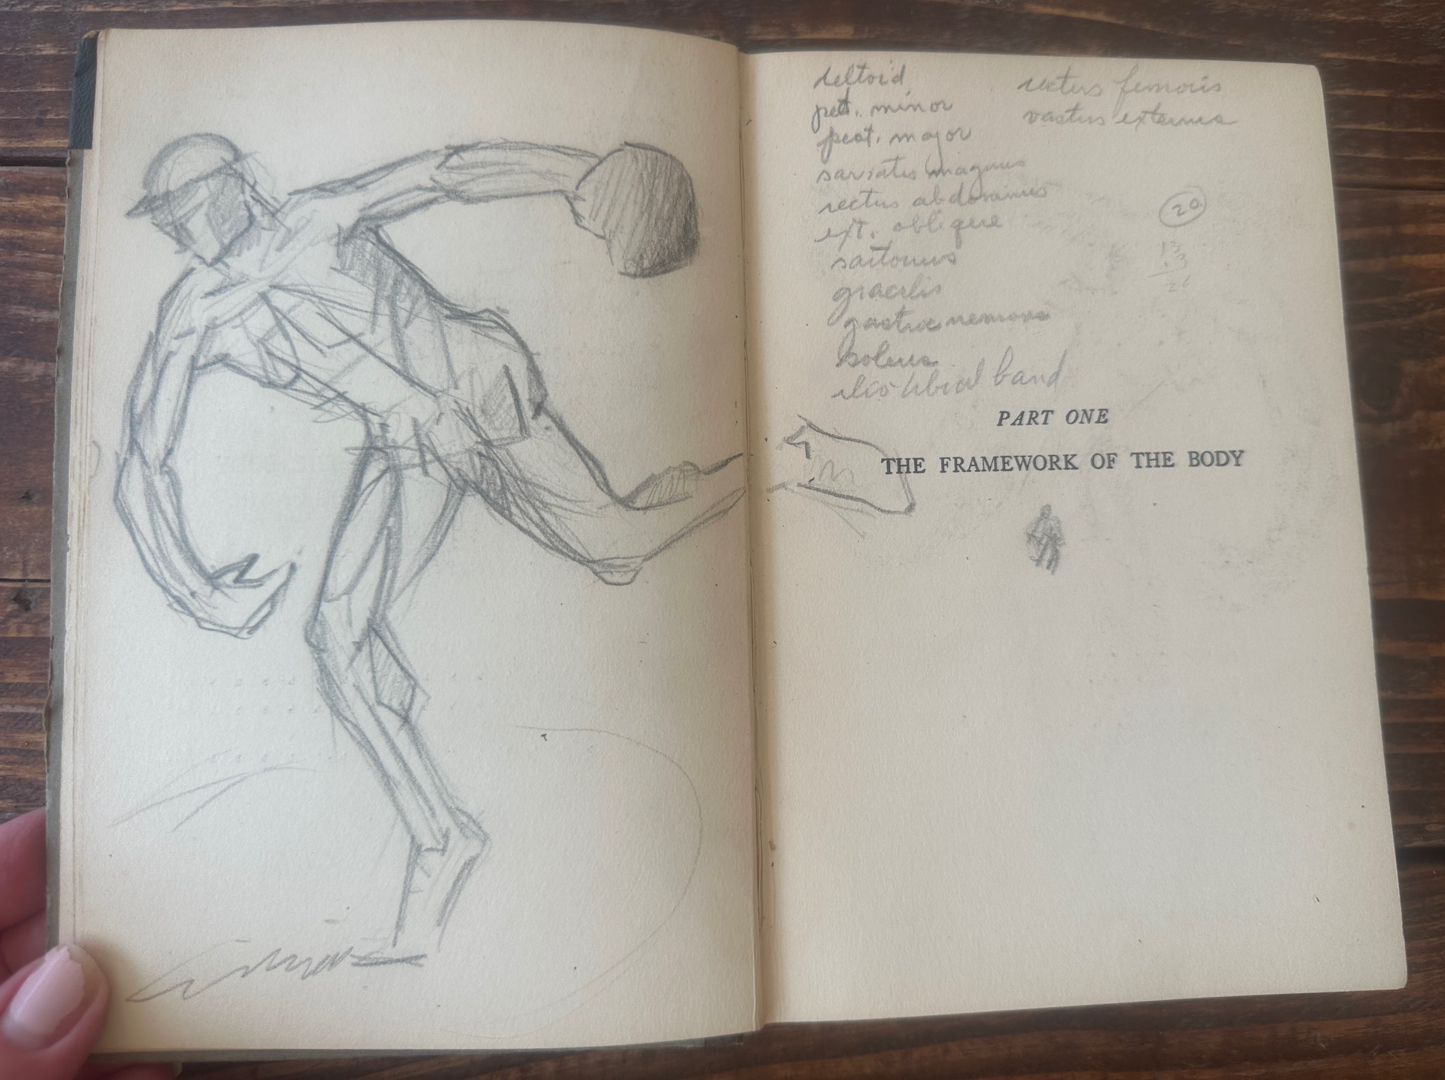 deltoid
pect. minor
pect. major
sarratis magnus
rectus abdominus
ext. oblique
sartorius
gracilis
gastrocnemous
soleus
ilio tibial band
rectus femoris
vastus externus
20
13
13
26
PART ONE
THE FRAMEWORK OF THE BODY